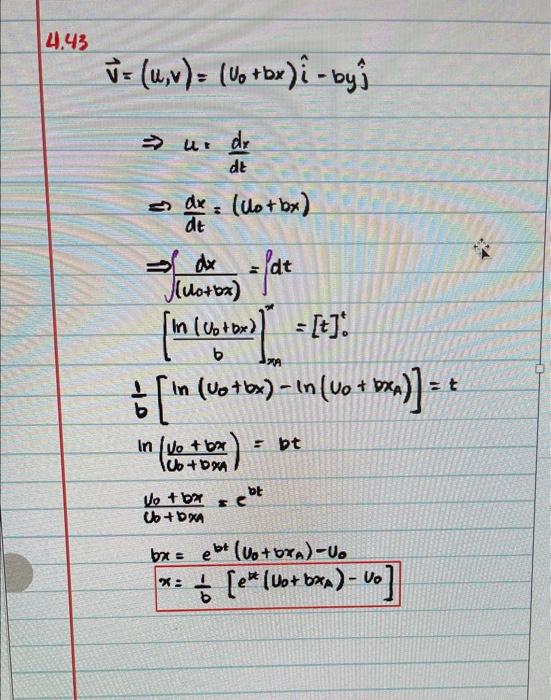 4.43
v⃗ = (u,v) = (U₀ + bx) î - by ĵ
⇒ u = dx/dt
⇒ dx/dt = (U₀ + bx)
⇒ ∫ dx/(U₀+bx) = ∫ dt
[ln (U₀+bx)/b]ˣₓA = [t]ᵗ₀
1/b [ln (U₀+bx) - ln (U₀ + bxA)] = t
ln (U₀ + bx / U₀ + bxA) = bt
U₀ + bx / U₀ + bxA = e^bt
bx = e^bt (U₀+bxA) - U₀
x = 1/b [e^bt (U₀+bxA) - U₀]